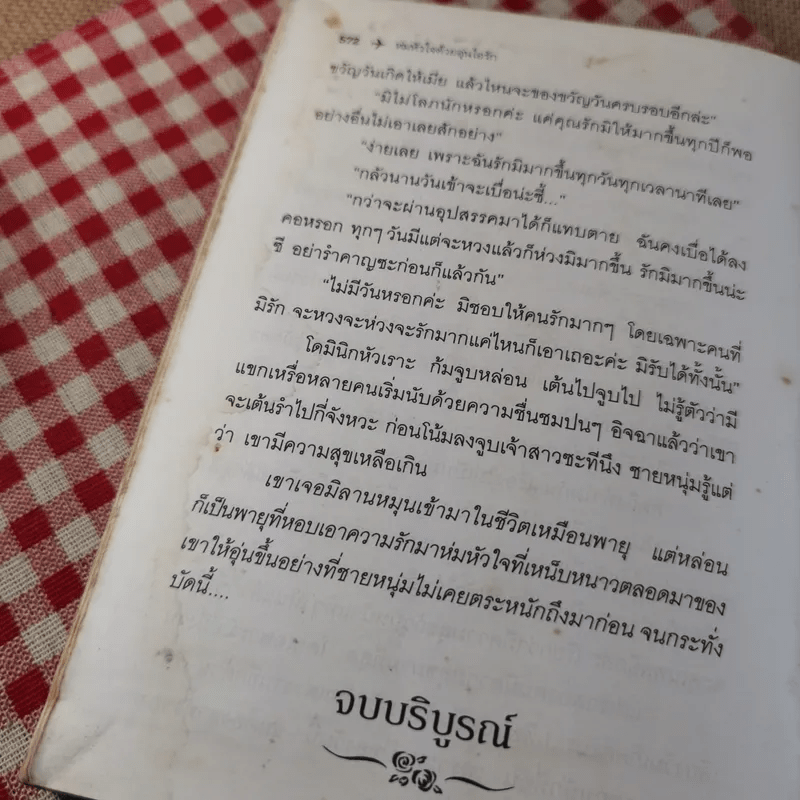 572 → ห่มหัวใจด้วยอุ่นไอรัก
ขวัญวันเกิดให้เมีย แล้วไหนจะของขวัญวันครบรอบอีกล่ะ"
"มิไม่โลภนักหรอกค่ะ แค่คุณรักมิให้มากขึ้นทุกปีก็พอ
อย่างอื่นไม่เอาเลยสักอย่าง"
"ง่ายเลย เพราะฉันรักมิมากขึ้นทุกวันทุกเวลานาทีเลย"
"กลัวนานวันเข้าจะเบื่อน่ะซี้..."
"กว่าจะผ่านอุปสรรคมาได้ก็แทบตาย ฉันคงเบื่อได้ลง
คอหรอก ทุกๆ วันมีแต่จะหวงแล้วก็ห่วงมิมากขึ้น รักมิมากขึ้นน่ะ
ซี อย่ารำคาญซะก่อนก็แล้วกัน"
"ไม่มีวันหรอกค่ะ มิชอบให้คนรักมากๆ โดยเฉพาะคนที่
มิรัก จะหวงจะห่วงจะรักมากแค่ไหนก็เอาเถอะค่ะ มิรับได้ทั้งนั้น"
โดมินิกหัวเราะ ก้มจูบหล่อน เต้นไปจูบไป ไม่รู้ตัวว่ามี
แขกเหรื่อหลายคนเริ่มนับด้วยความชื่นชมปนๆ อิจฉาแล้วว่าเขา
จะเต้นรำไปกี่จังหวะ ก่อนโน้มลงจูบเจ้าสาวซะทีนึง ชายหนุ่มรู้แต่
ว่า เขามีความสุขเหลือเกิน
เขาเจอมิลานหมุนเข้ามาในชีวิตเหมือนพายุ แต่หล่อน
ก็เป็นพายุที่หอบเอาความรักมาห่มหัวใจที่เหน็บหนาวตลอดมาของ
เขาให้อุ่นขึ้นอย่างที่ชายหนุ่มไม่เคยตระหนักถึงมาก่อน จนกระทั่ง
บัดนี้....
จบบริบูรณ์